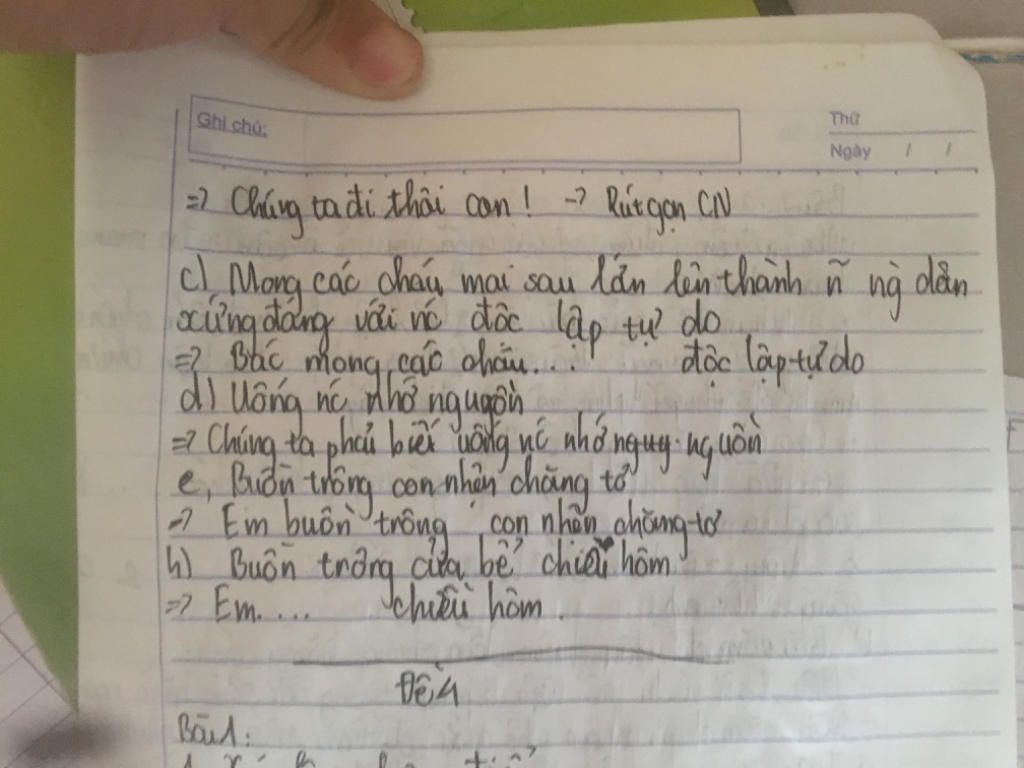 Ghi chú:
Thứ
Ngày / /
=> Chúng ta đi thôi con! -> Rút gọn CN
c) Mong các cháu mai sau lớn lên thành ñ ng dân
xứng đáng với nc độc lập tự do
=> Bác mong các cháu... độc lập tự do
d) Uống nc nhớ nguồn
=> Chúng ta phải biết uống nc nhớ nguy nguồn
e, Buồn trông con nhện chăng tơ
=> Em buồn trông con nhện chăng tơ
h) Buồn trông cửa bể chiều hôm
=> Em.... chiều hôm.
Đề 4
Bài 1: